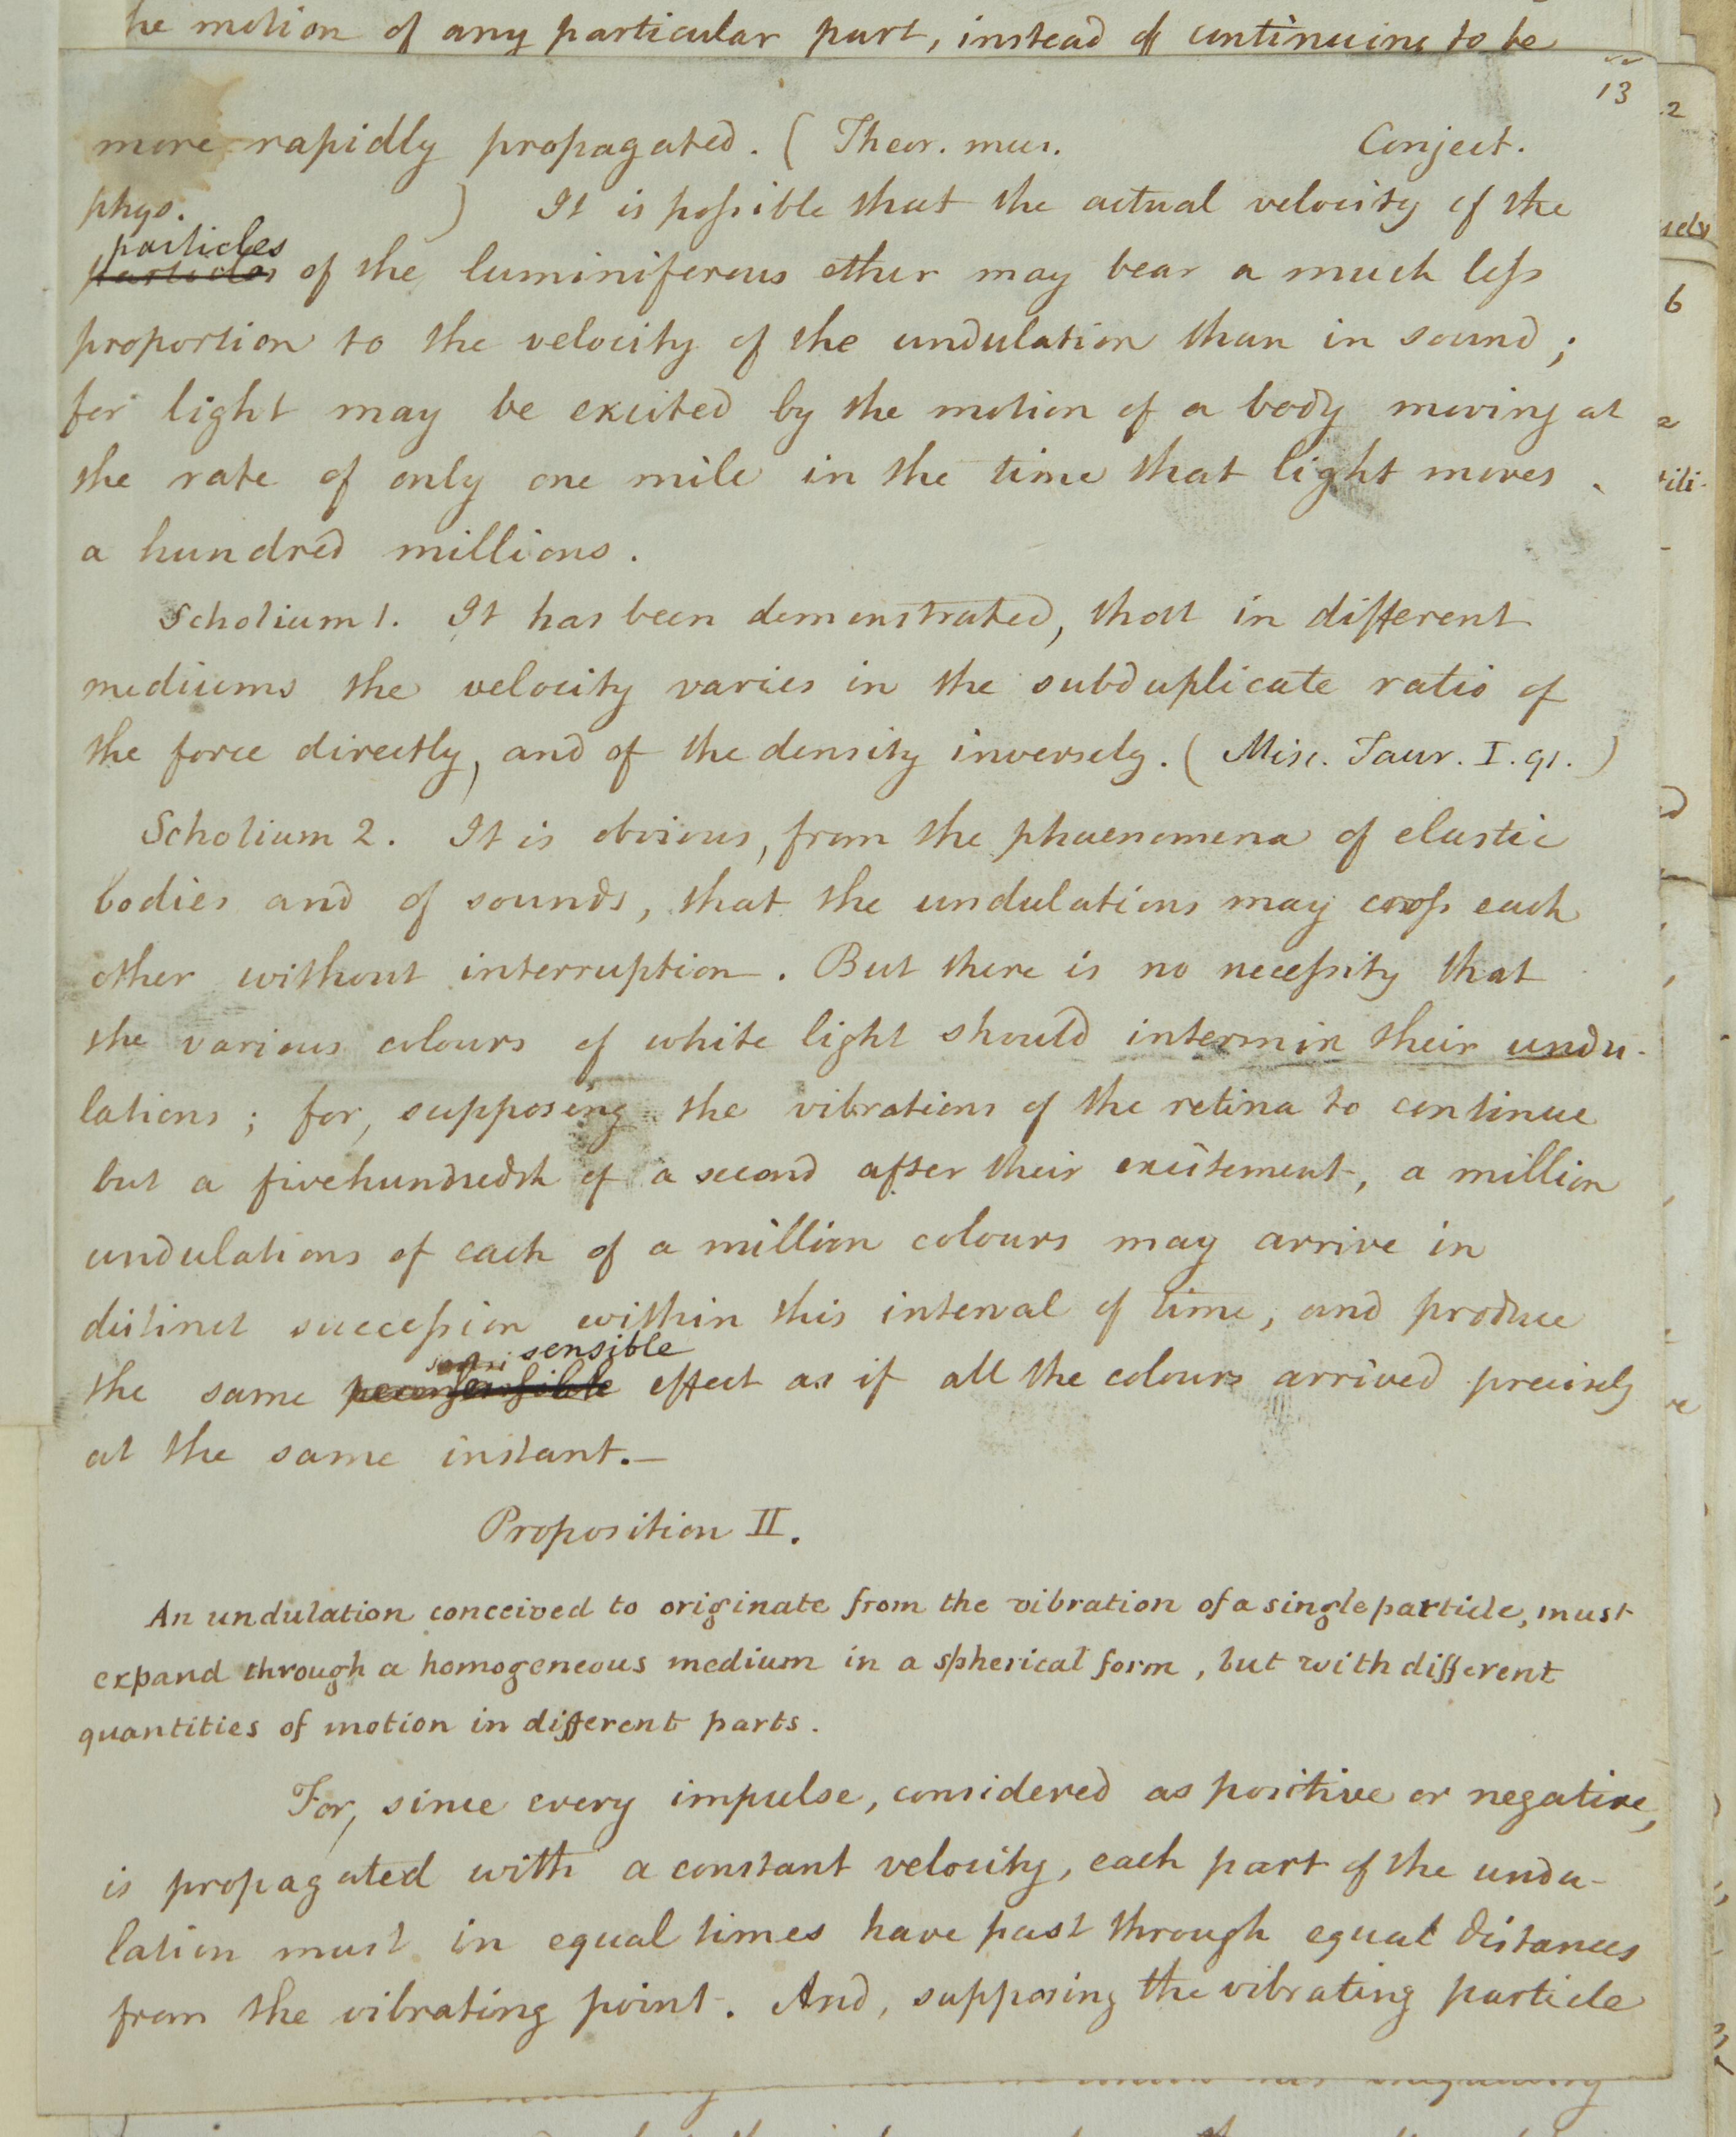 he motion of any particular part, instead of continuing to be
13
more rapidly propagated. ( Theor. mus. Conject.
phys. ) It is possible that the actual velocity of the
particles
particles of the luminiferous ether may bear a much less
proportion to the velocity of the undulation than in sound;
for light may be excited by the motion of a body moving at
the rate of only one mile in the time that light moves
a hundred millions.
Scholium 1. It has been demonstrated, that in different
mediums the velocity varies in the subduplicate ratio of
the force directly, and of the density inversely. ( Misc. Taur. I. 91. )
Scholium 2. It is obvious, from the phaenomena of elastic
bodies and of sounds, that the undulations may cross each
other without interruption. But there is no necessity that
the various colours of white light should intermix their undu-
lations; for, supposing the vibrations of the retina to continue
but a fivehundredth of a second after their excitement, a million
undulations of each of a million colours may arrive in
distinct succession within this interval of time, and produce
sensible
the same effect as if all the colours arrived precisely
at the same instant.—
Proposition II.
An undulation conceived to originate from the vibration of a single particle, must
expand through a homogeneous medium in a spherical form, but with different
quantities of motion in different parts.
For, since every impulse, considered as positive or negative,
is propagated with a constant velocity, each part of the undu-
lation must in equal times have past through equal distances
from the vibrating point. And, supposing the vibrating particle